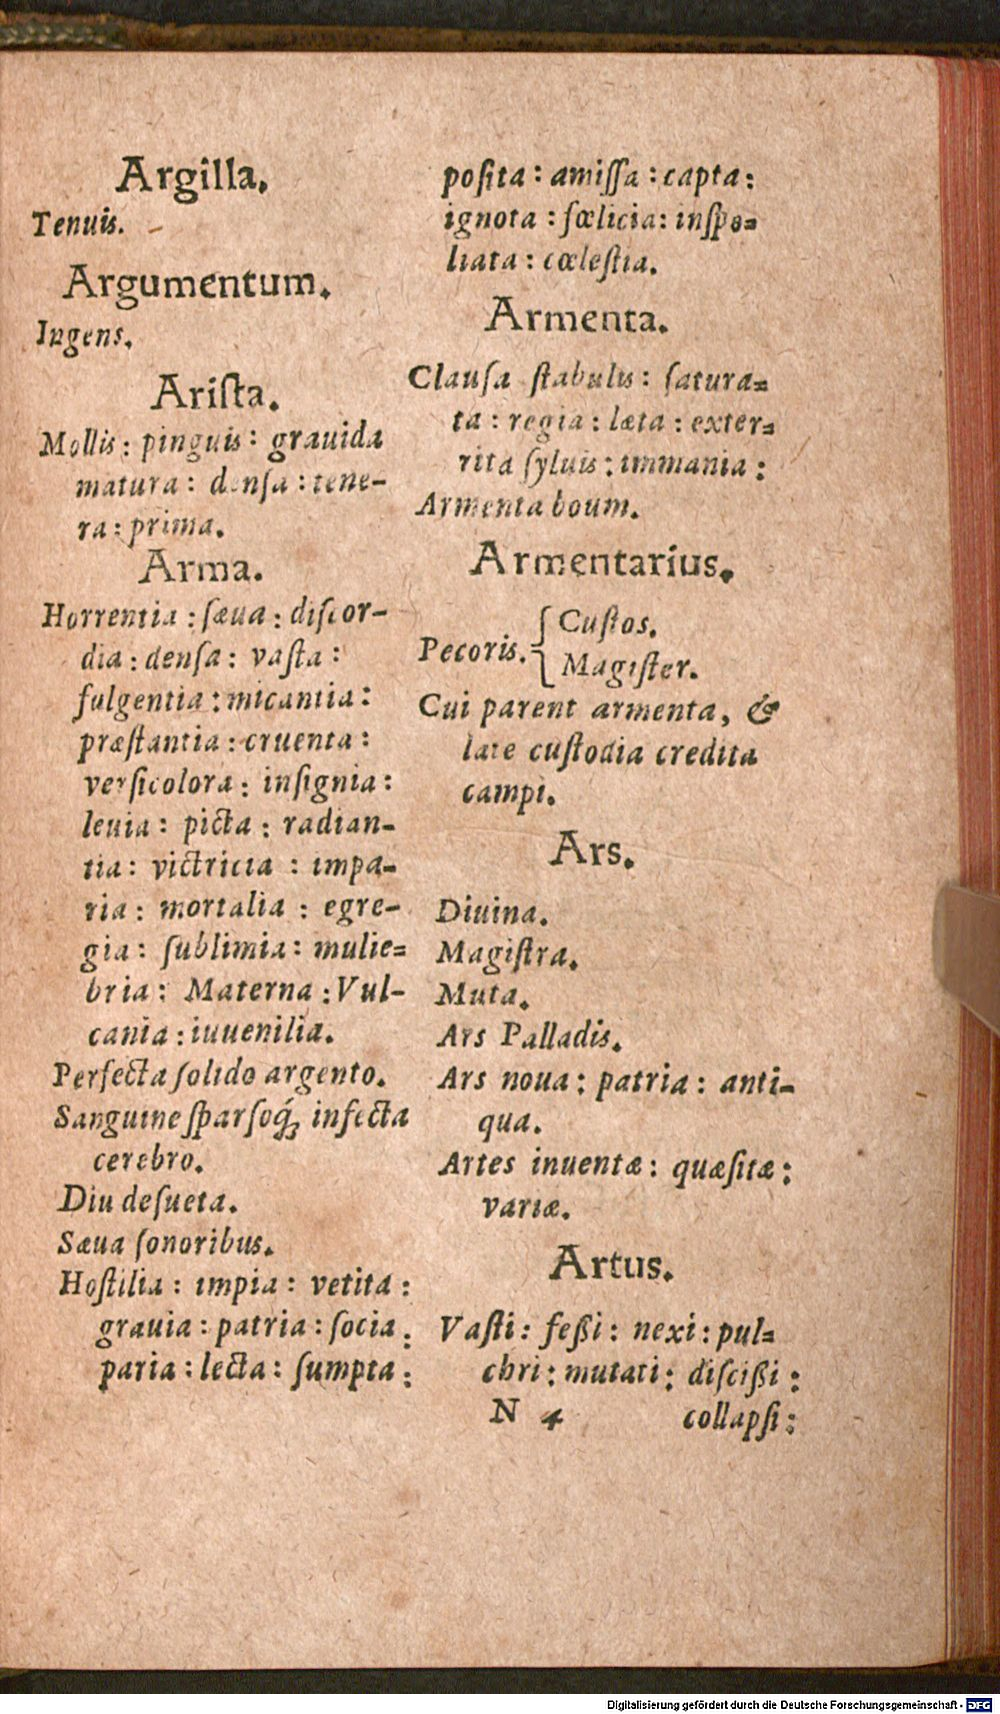 Argilla.
Tenuis.
Argumentum.
Ingens.
Ariſta.
Mollis: pinguis: grauida
matura: denſa: tene-
ra: prima.
Arma.
Horrentia: ſæua: diſcor-
dia: denſa: vaſta:
fulgentia: micantia:
præſtantia: cruenta:
verſicolora: inſignia:
leuia: picta: radian-
tia: victricia: impa-
ria: mortalia: egre-
gia: ſublimia: mulie=
bria: Materna: Vul-
cania: iuuenilia.
Perfecta ſolido argento.
Sanguine ſparſoq́; infecta
cerebro.
Diu deſueta.
Sæua ſonoribus.
Hoſtilia: impia: vetita:
grauia: patria: ſocia:
paria: lecta: ſumpta:
poſita: amiſſa: capta:
ignota: fœlicia: inſpo=
liata: cœleſtia.
Armenta.
Clauſa ſtabulis: ſatura=
ta: regia: læta: exter=
rita ſyluis: immania:
Armenta boum.
Armentarius.
Pecoris. { Cuſtos.
Magiſter.
Cui parent armenta, &
late cuſtodia credita
campi.
Ars.
Diuina.
Magiſtra.
Muta.
Ars Palladis.
Ars noua: patria: anti-
qua.
Artes inuentæ: quæſitæ:
variæ.
Artus.
Vaſti: feßi: nexi: pul=
chri: mutati: diſcißi:
N 4 collapſi:
Digitalisierung gefördert durch die Deutsche Forschungsgemeinschaft - DFG